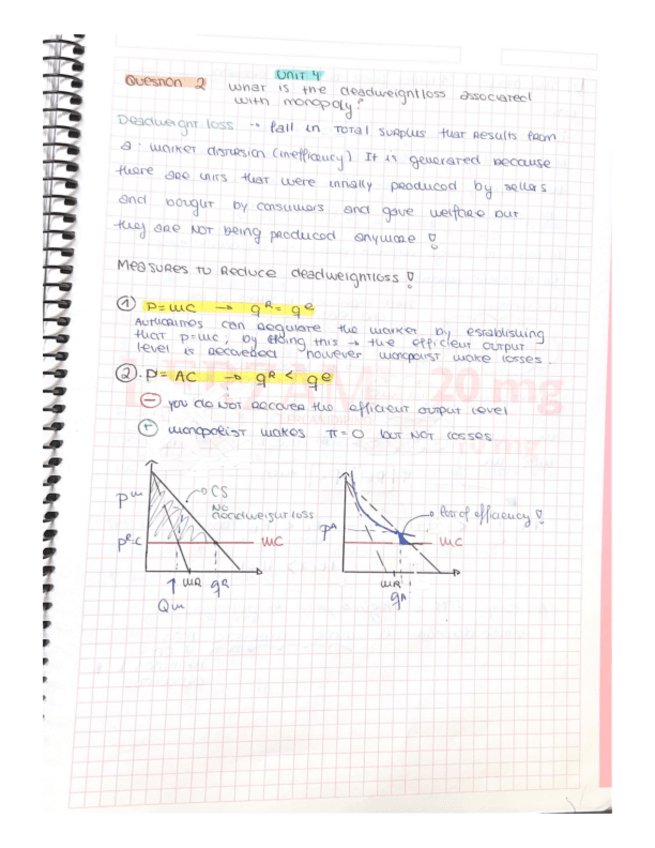 Unit 4
Question 2 What is the deadweightloss associated
with monopoly?
Deadweight loss → fall in total surplus that results from
a market distorsion (inefficiency) It is generated because
there are units that were initially produced by sellers
and bought by consumers and gave welfare but
they are NOT being produced anymore !
Measures to Reduce deadweightloss !
① P=MC → qR = qe
Authorities can regulate the market by establishing
that p=mc, by doing this → the efficient output
level is recovered however monopolist make losses.
②. P= AC → qR < qe
⊖ you do NOT recover the efficient output level
20 mg
⊕ monopolist makes π=0 but NOT losses
pm
CS
No
deadweight loss
pR=C
MC
MR
qR
Qm
loss of efficiency !
pA
MC
MR
qA